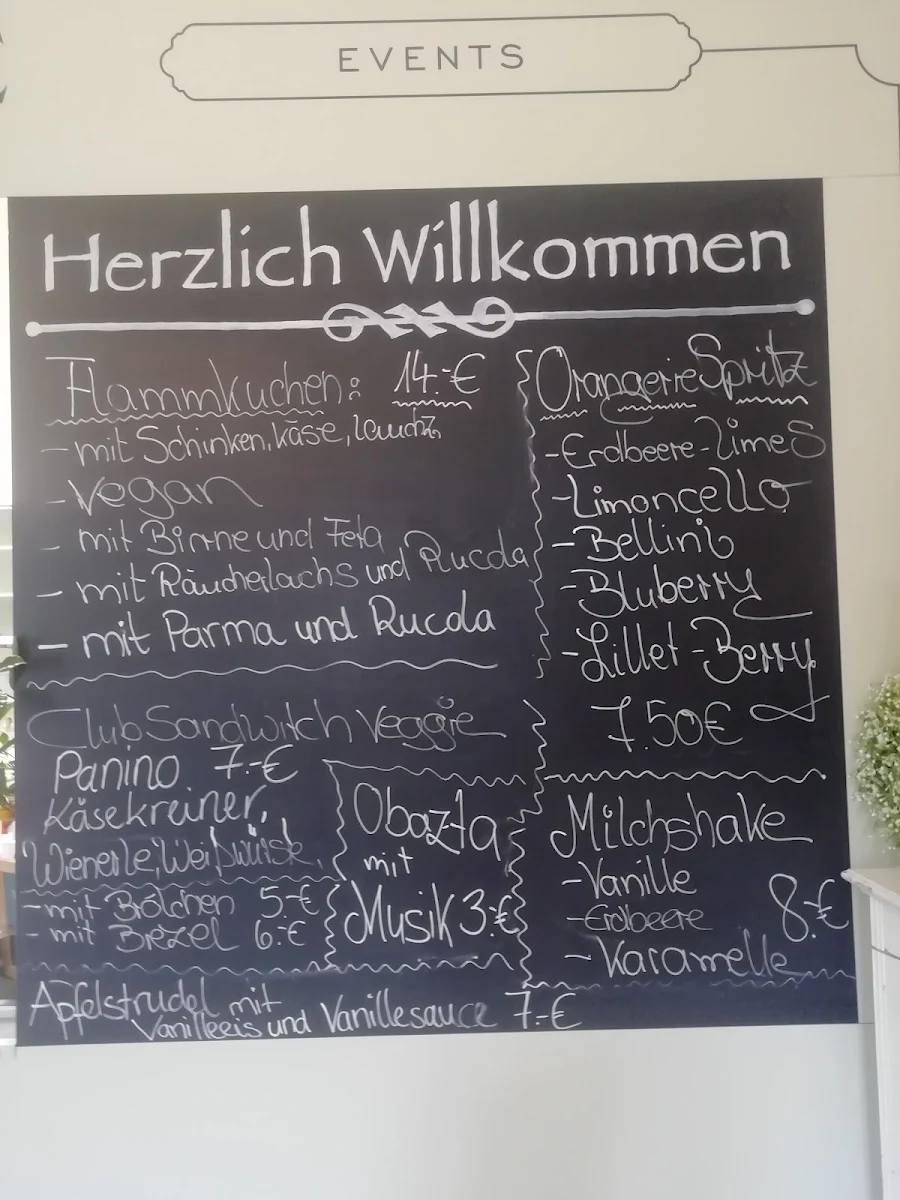 EVENTS
Herzlich Willkommen
Flammkuchen: 14.-€
- mit Schinken, Käse, Lauchz.
- Vegan
- mit Birne und Feta
- mit Räucherlachs und Rucola
- mit Parma und Rucola
Club Sandwitch Veggie
Panino 7.-€
Käsekreiner,
Wienerle, Weißwürste,
- mit Brötchen 5.-€
- mit Brezel 6.-€
Obazta
mit
Musik 3.-€
Apfelstrudel mit
Vanilleeis und Vanillesauce 7.-€
Orangerie Spritz
- Erdbeere-Limes
- Limoncello
- Bellini
- Bluberry
- Lillet - Berry
7.50€
Milchshake
- Vanille
- Erdbeere 8.-€
- Karamelle